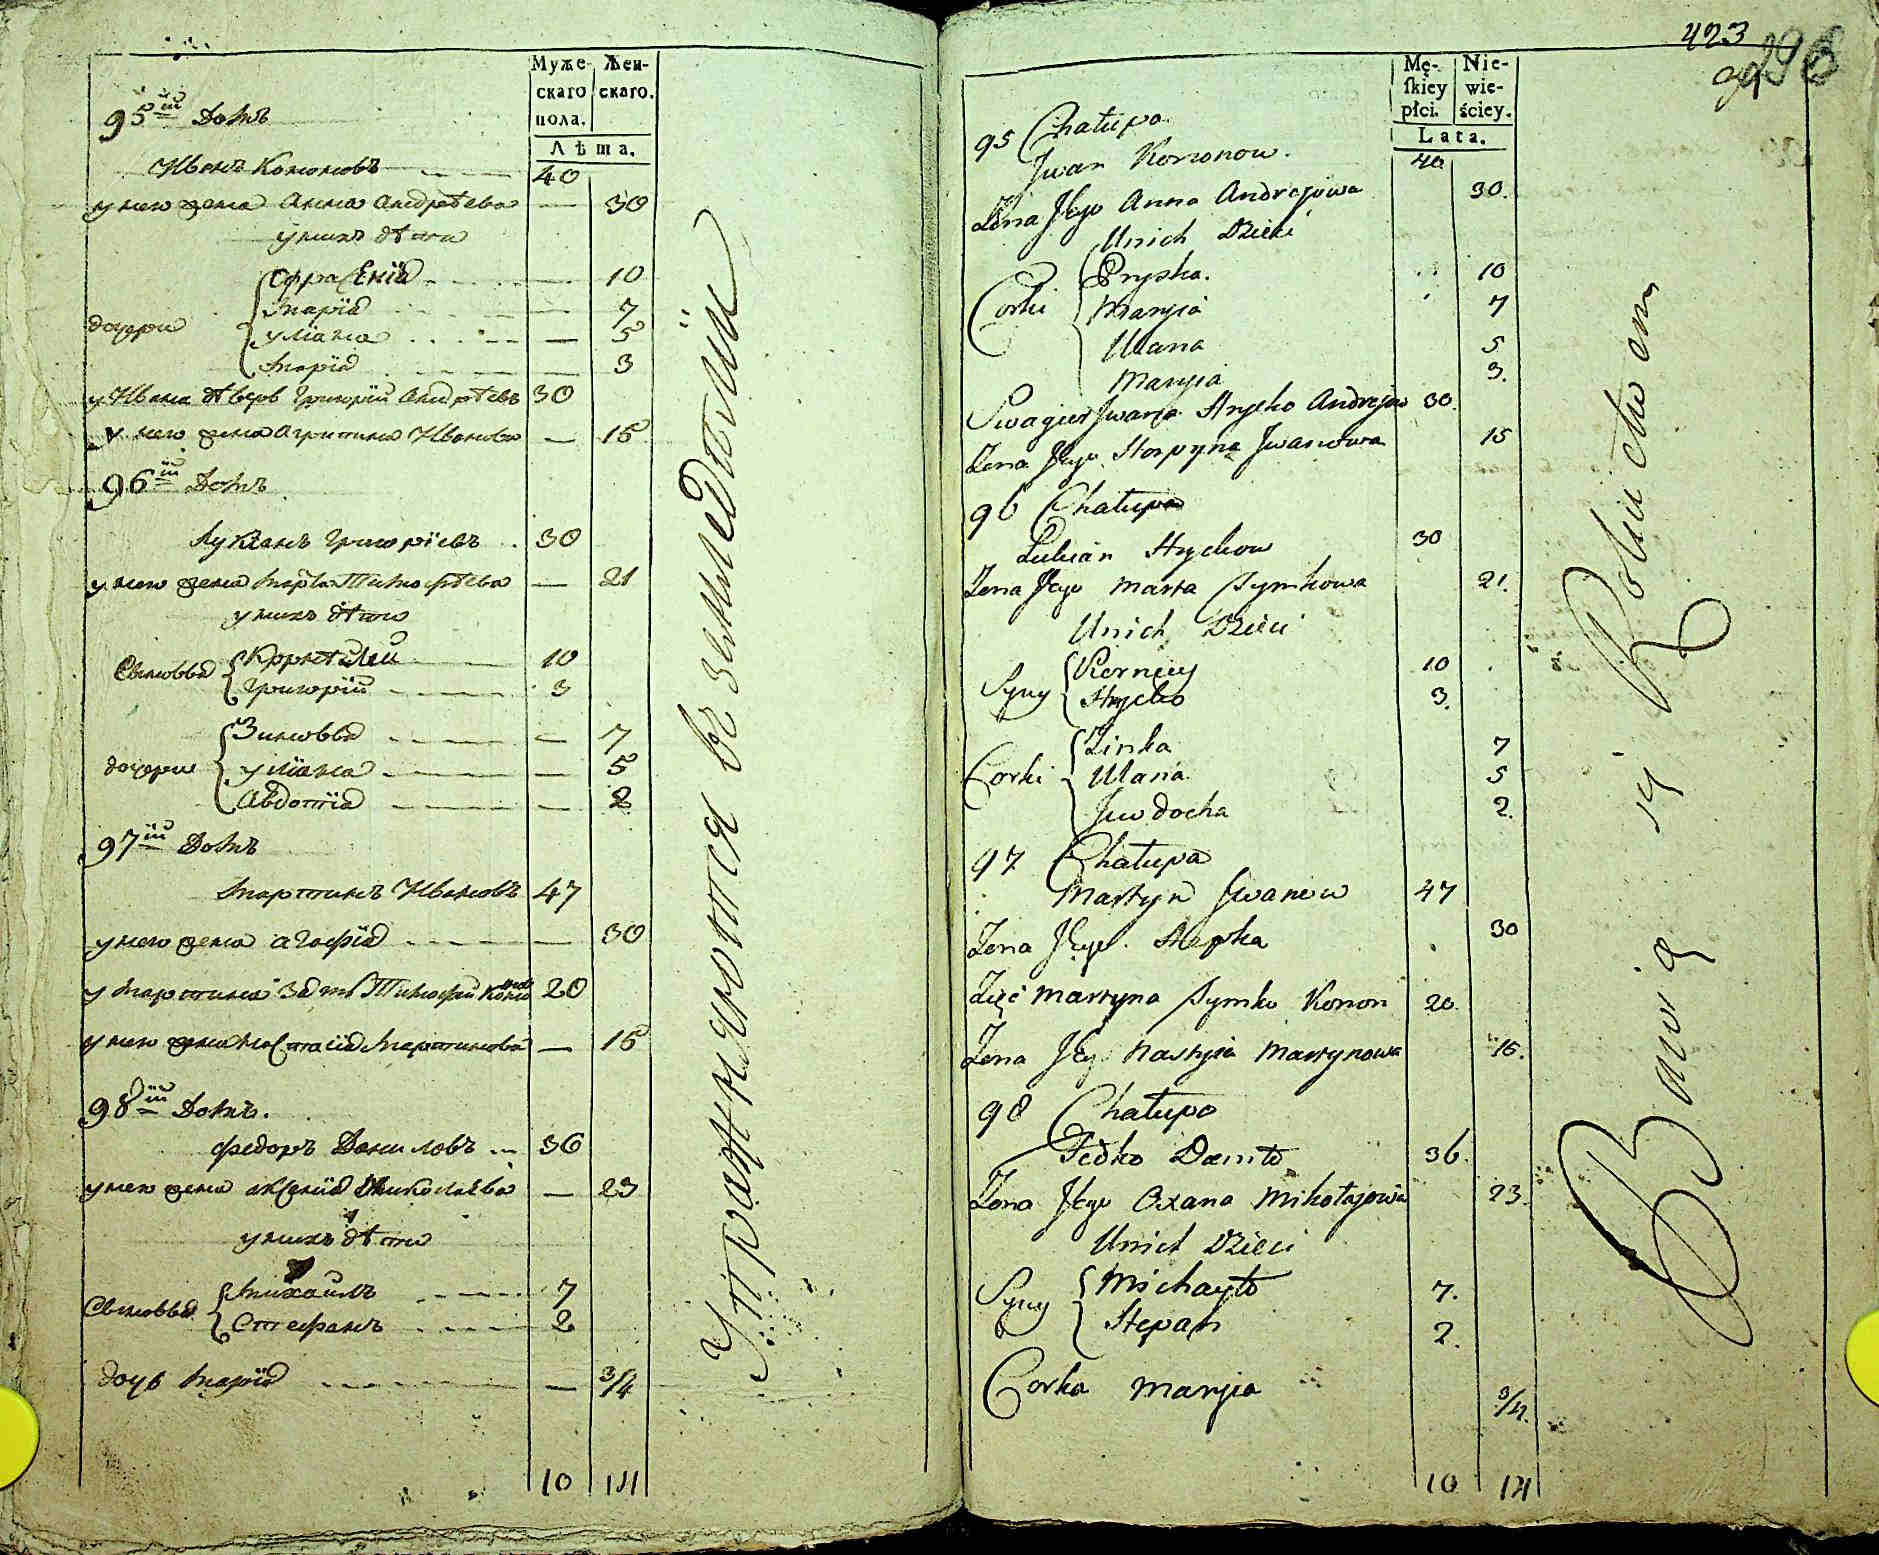 Муже- Жен-
скаго скаго.
пола.
Лѣта.
95й Домъ
Иванъ Кононовъ 40
у него жена Анна Андрѣева — 30
у нихъ дѣти
дочери
Ефрасенія — 10
Марія — 7
Уліана — 5
Марія — 3
у Ивана дѣверь Григорій Андрѣевъ 30
у него жена Агрипина Иванова — 15
96й Домъ
Лукіанъ Григоріевъ 30
у него жена Марфа Тимофѣева — 21
у нихъ дѣти
Сыновья
Корнѣлей 10
Григорій 3
дочери
Зиновья — 7
Уліана — 5
Авдотія — 2
97й Домъ
Мартинъ Ивановъ 47
у него жена Агафія — 30
у Мартина зять Тимофей 20
у него жена Настасія Мартинова — 15
98й Домъ.
Федоръ Даниловъ 36
у него жена Аксенія Николаева — 23
у нихъ дѣти
Сыновья
Михаилъ 7
Стефанъ 2
дочь Марія — 3/4
10 14
Упражняются въ земледѣліи
423
Mę- Nie-
skiey wie-
płci. ściey.
Lata.
95 Chałupa
Jwan Kononow. 40
Żona Jego Anna Andrejowa 30.
Unich Dzieci
Corki
Pryska. 10
Maryia 7
Ulana 5
Maryia 3.
Swagier Jwana Hryćko Andrejow 30.
Zona Jego Horpyna Jwanowa 15
96 Chałupa
Lukian Hryckow 30
Zona Jego Marta Symkowa 21.
Unich Dzieci
Syny
Korniey 10
Hrycko 3.
Corki
Zinka 7
Ulana 5
Juwdocha 2.
97 Chałupa
Martyn Jwanow 47
Zona Jego Hapka 30
Zięć Martyna Symko Konon 20.
Zona Jego Nastyia Martynowa 15.
98 Chałupa
Fedko Daniło 36.
Zona Jego Oxana Mikołajowa 23.
Unich Dzieci
Syny
Michayło 7.
Stepan 2.
Corka Maryia 3/4.
10 14
Bawią się Rolnictwem